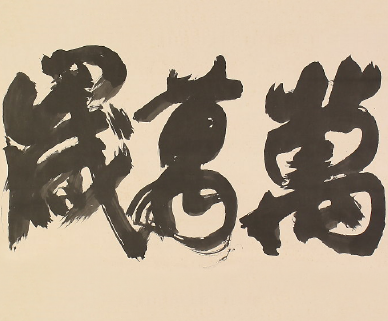 萬萬歳